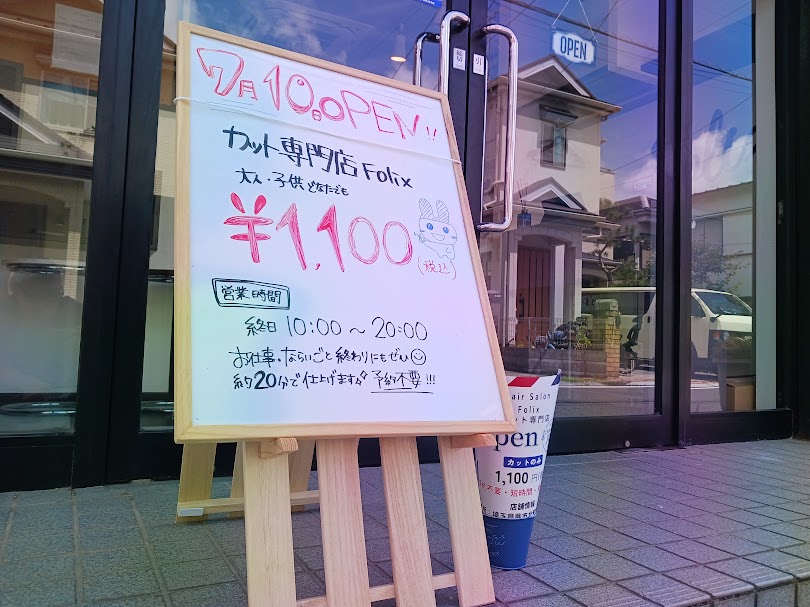 7月10日OPEN!!
カット専門店Folix
大人・子供どなたでも
¥1,100
(税込)
営業時間
終日 10:00〜20:00
お仕事、ならいごと終わりにもぜひ
約20分で仕上げます 予約不要!!!
OPEN
引
air Salon
Folix
ット専門店
pen
カットのみ
1,100円
不要・短時間・
店舗情報
埼玉県